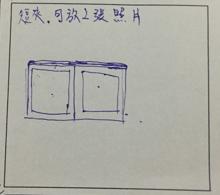 短夾.可放2張照片